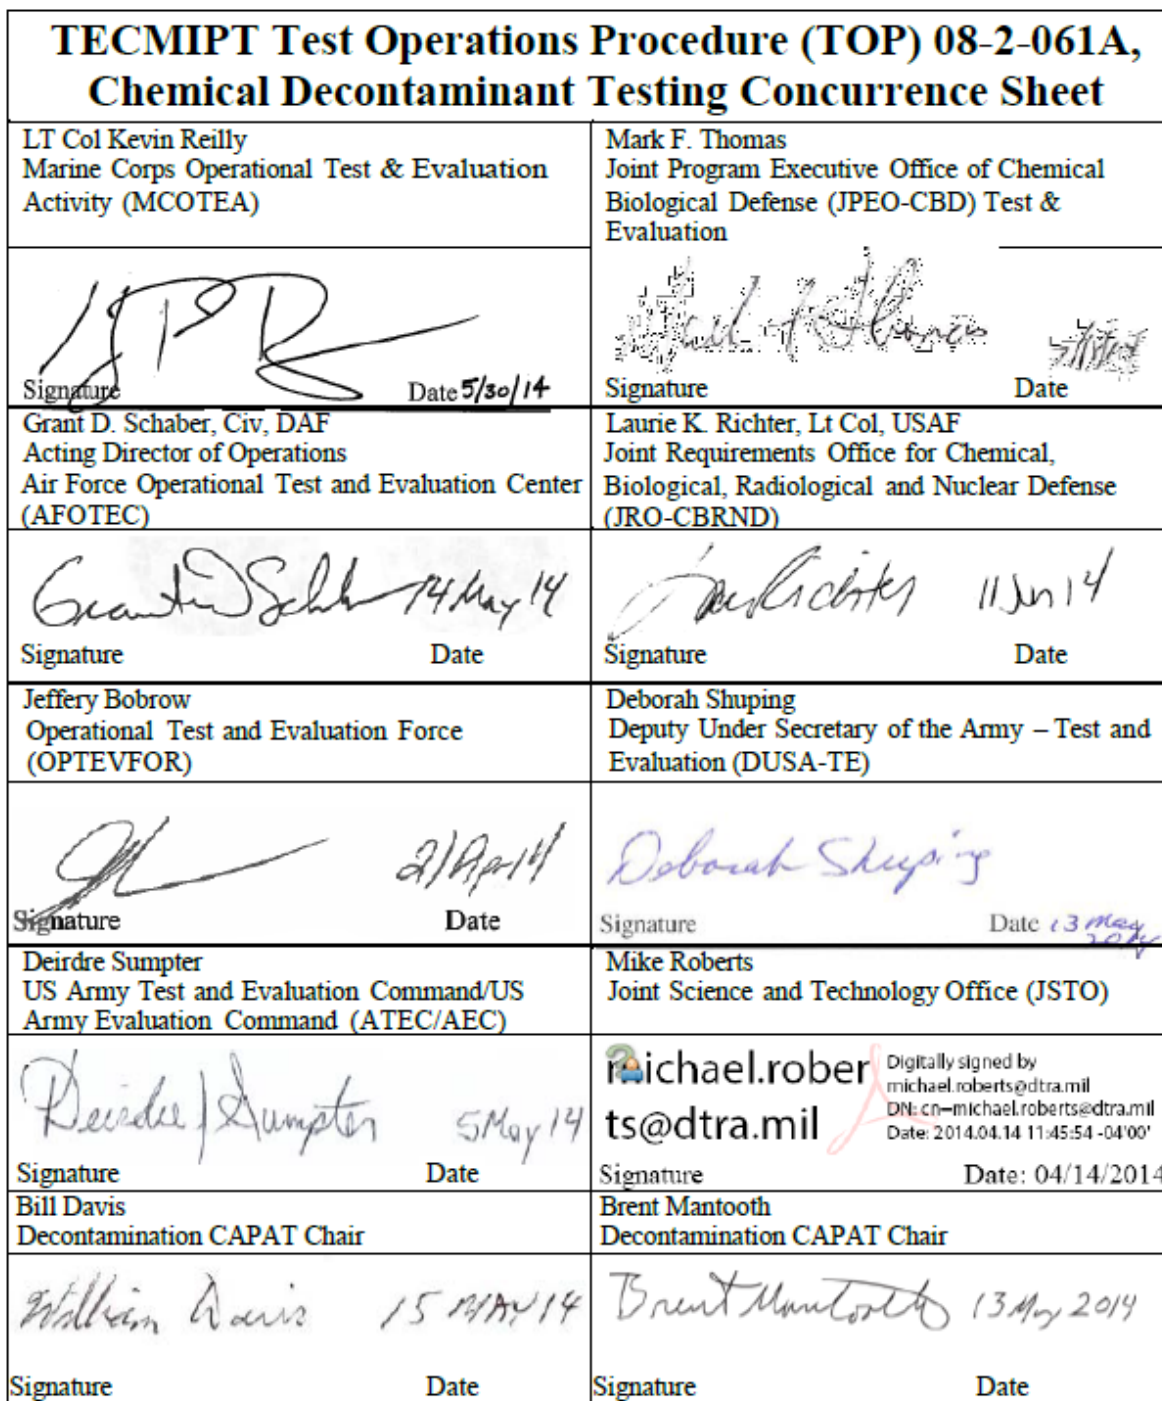 TECMIPT Test Operations Procedure (TOP) 08-2-061A,
Chemical Decontaminant Testing Concurrence Sheet
LT Col Kevin Reilly
Marine Corps Operational Test & Evaluation
Activity (MCOTEA)
Mark F. Thomas
Joint Program Executive Office of Chemical
Biological Defense (JPEO-CBD) Test &
Evaluation
Signature Date 5/30/14
Mark F Thomas
Signature Date
Grant D. Schaber, Civ, DAF
Acting Director of Operations
Air Force Operational Test and Evaluation Center
(AFOTEC)
Laurie K. Richter, Lt Col, USAF
Joint Requirements Office for Chemical,
Biological, Radiological and Nuclear Defense
(JRO-CBRND)
14 May 14
Signature Date
11 Jun 14
Signature Date
Jeffery Bobrow
Operational Test and Evaluation Force
(OPTEVFOR)
Deborah Shuping
Deputy Under Secretary of the Army – Test and
Evaluation (DUSA-TE)
21 Apr 14
Signature Date
Deborah Shuping
Signature Date 13 May
2014
Deirdre Sumpter
US Army Test and Evaluation Command/US
Army Evaluation Command (ATEC/AEC)
Mike Roberts
Joint Science and Technology Office (JSTO)
Deirdre J Sumpter 5 May 14
Signature Date
michael.rober
ts@dtra.mil
Digitally signed by
michael.roberts@dtra.mil
DN: cn=michael.roberts@dtra.mil
Date: 2014.04.14 11:45:54 -04'00'
Signature Date: 04/14/2014
Bill Davis
Decontamination CAPAT Chair
Brent Mantooth
Decontamination CAPAT Chair
William Davis 15 MAY 14
Signature Date
Brent Mantooth 13 May 2014
Signature Date